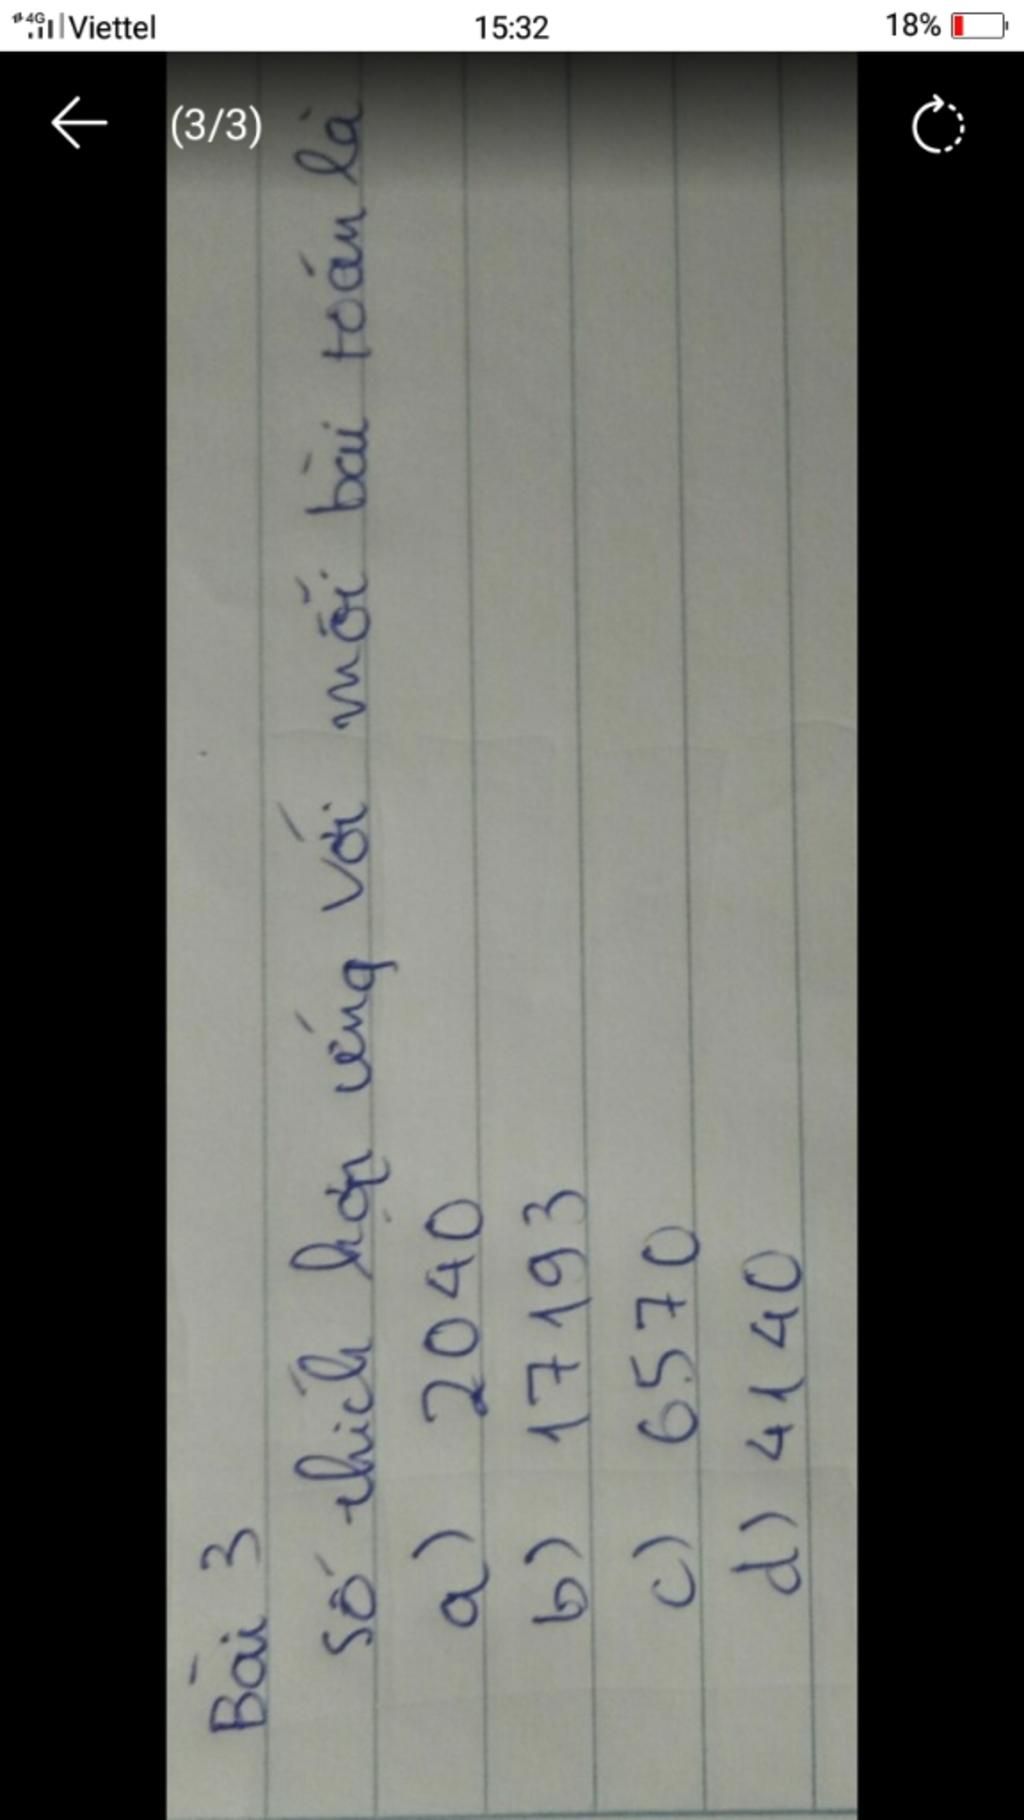 4G Viettel 15:32 18%
(3/3)
Bài 3
Số thích hợp ứng với mỗi bài toán là
a) 2040
b) 17193
c) 6570
d) 4140